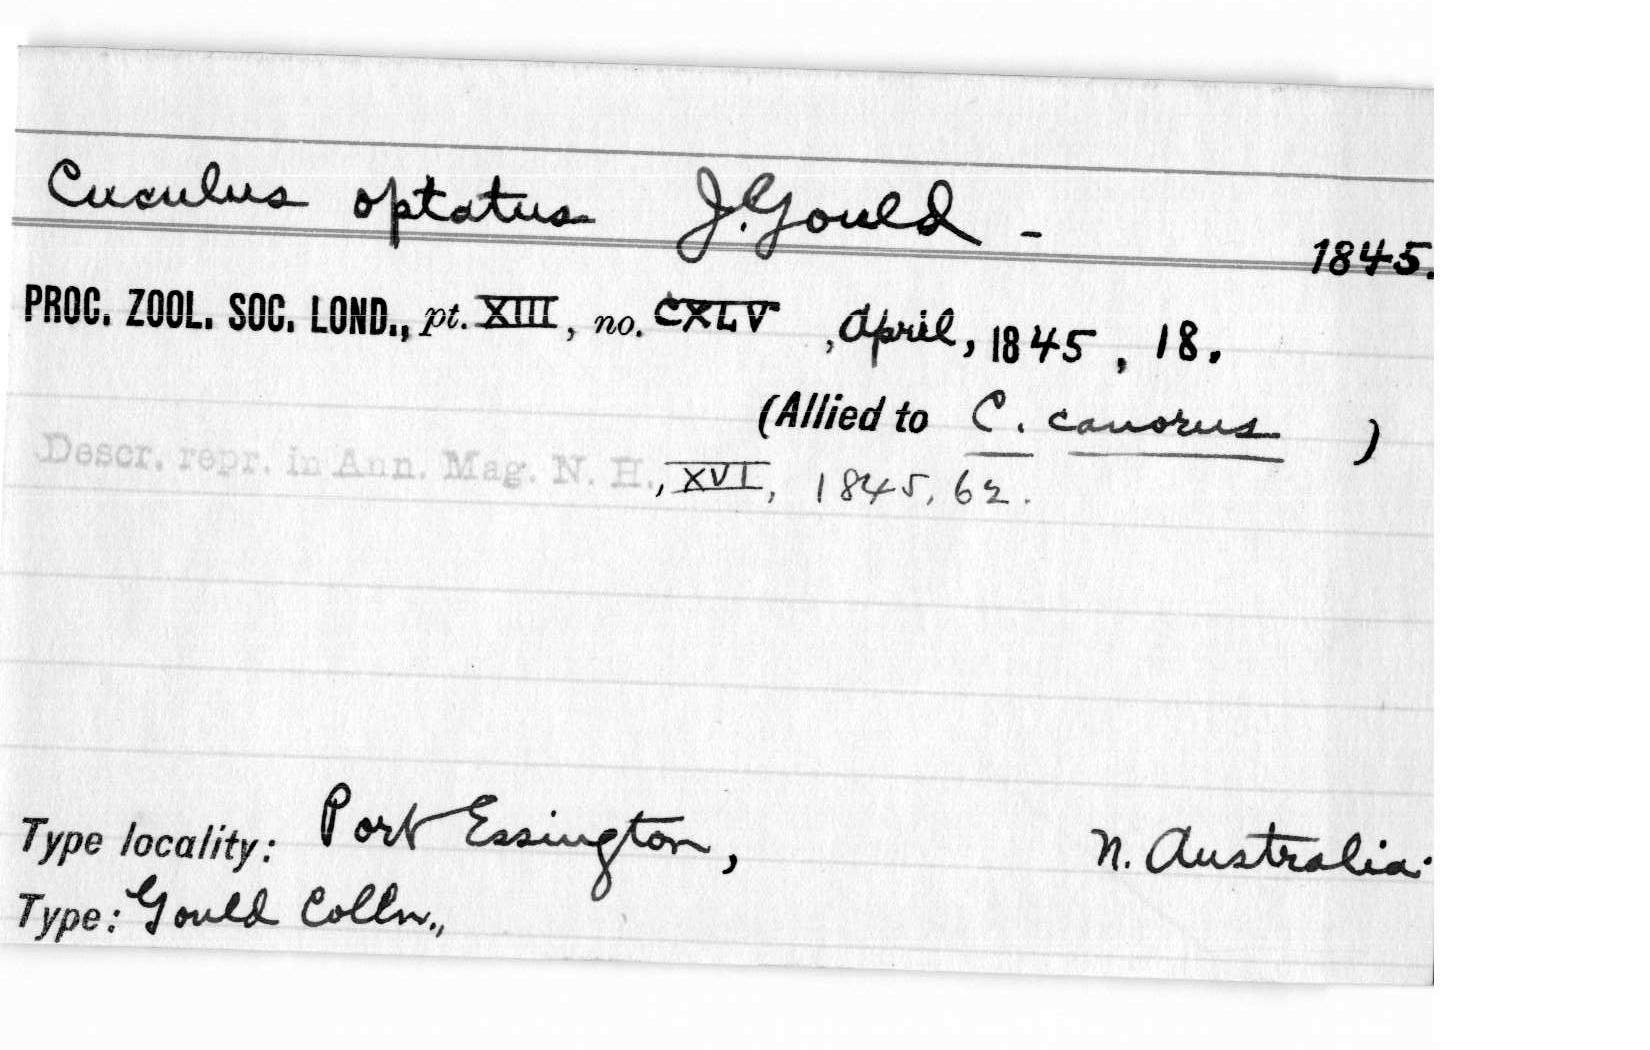 Cuculus optatus J. Gould - 1845.
PROC. ZOOL. SOC. LOND., pt. XIII, no. CXLV, April, 1845, 18.
(Allied to C. canorus )
Descr. repr. in Ann. Mag. N. H., XVI, 1845, 62.
Type locality: Port Essington, N. Australia.
Type: Gould Colln.,